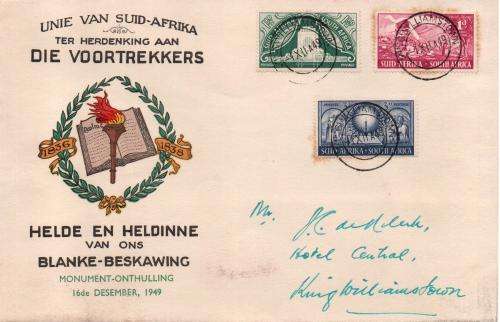 UNIE VAN SUID-AFRIKA
TER HERDENKING AAN
DIE VOORTREKKERS
1836 1838
HELDE EN HELDINNE
VAN ONS
BLANKE-BESKAWING
MONUMENT-ONTHULLING
16de DESEMBER, 1949
SUID-AFRIKA SOUTH AFRICA
1d
SUID-AFRIKA - SOUTH AFRICA
SUID-AFRIKA - SOUTH AFRICA
Mr.
Hotel Central,
King Williamstown